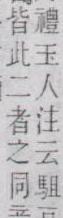 禮玉人注云駔
皆此二者之同